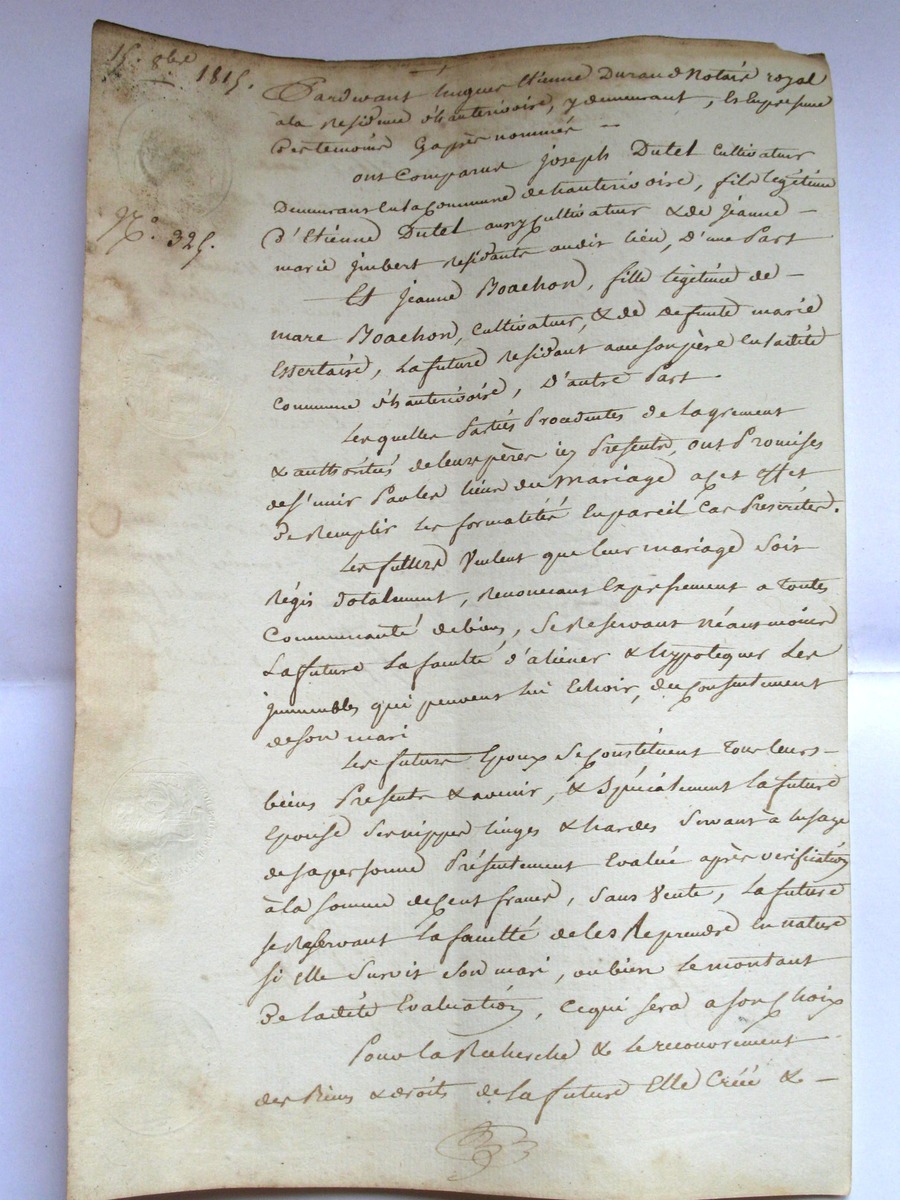 15. 8bre 1815.
N°. 325.
Pardevant hugues Etienne Durand Notaire royal
à la Residence d'hauterivoire, y demeurant, & En presence
Des temoins Cy après nommés —
ont Comparus Joseph Dutel Cultivateur
Demeurant En la Commune de hauterivoire, fils legitime
d'Etienne Dutel aussy Cultivateur & de Jeanne —
marie Jmbert residants audit lieu, D'une Part
Et Jeanne Boachon, fille legitime de —
marc Boachon, Cultivateur, & de defunte marie
Essertaire, La future residant avec son père En ladite
Commune d'hauterivoire, D'autre Part —
Lesquelles Parties Procedentes de Lagrement
& authorités de leurs pères icy Presents, ont Promises
de s'unir Par les liens du Mariage a Cet effet
De Remplir Les formalités En pareil Cas Prescrites.
Les futurs Veulent que leur mariage Soit
Régis dotalement, Renoncant Expressement a Toutes
Communauté de biens, Se Reservant Néansmoins
La future La faculté d'aliener & hypotequer Les
jmmeubles qui peuvent lui Echoir, du Consentement
de son mari
Les futurs Epoux Se Constituent Tous leurs —
biens Presents & avenir, & Spécialement la future
Epouse Ses nippes linges & hardes Servant a lusage
de sa personne Présentement Evalué après verification
à la somme de Cent francs, Sans Vente, La future
se Reservant La faculté de les Reprendre En nature
si Elle Survit Son mari, ou bien Le montant
De ladite Evaluation, Ce qui sera a son Choix
Pour La Recherche & le recouvrement
des Biens & droits de la future Elle Créé & —